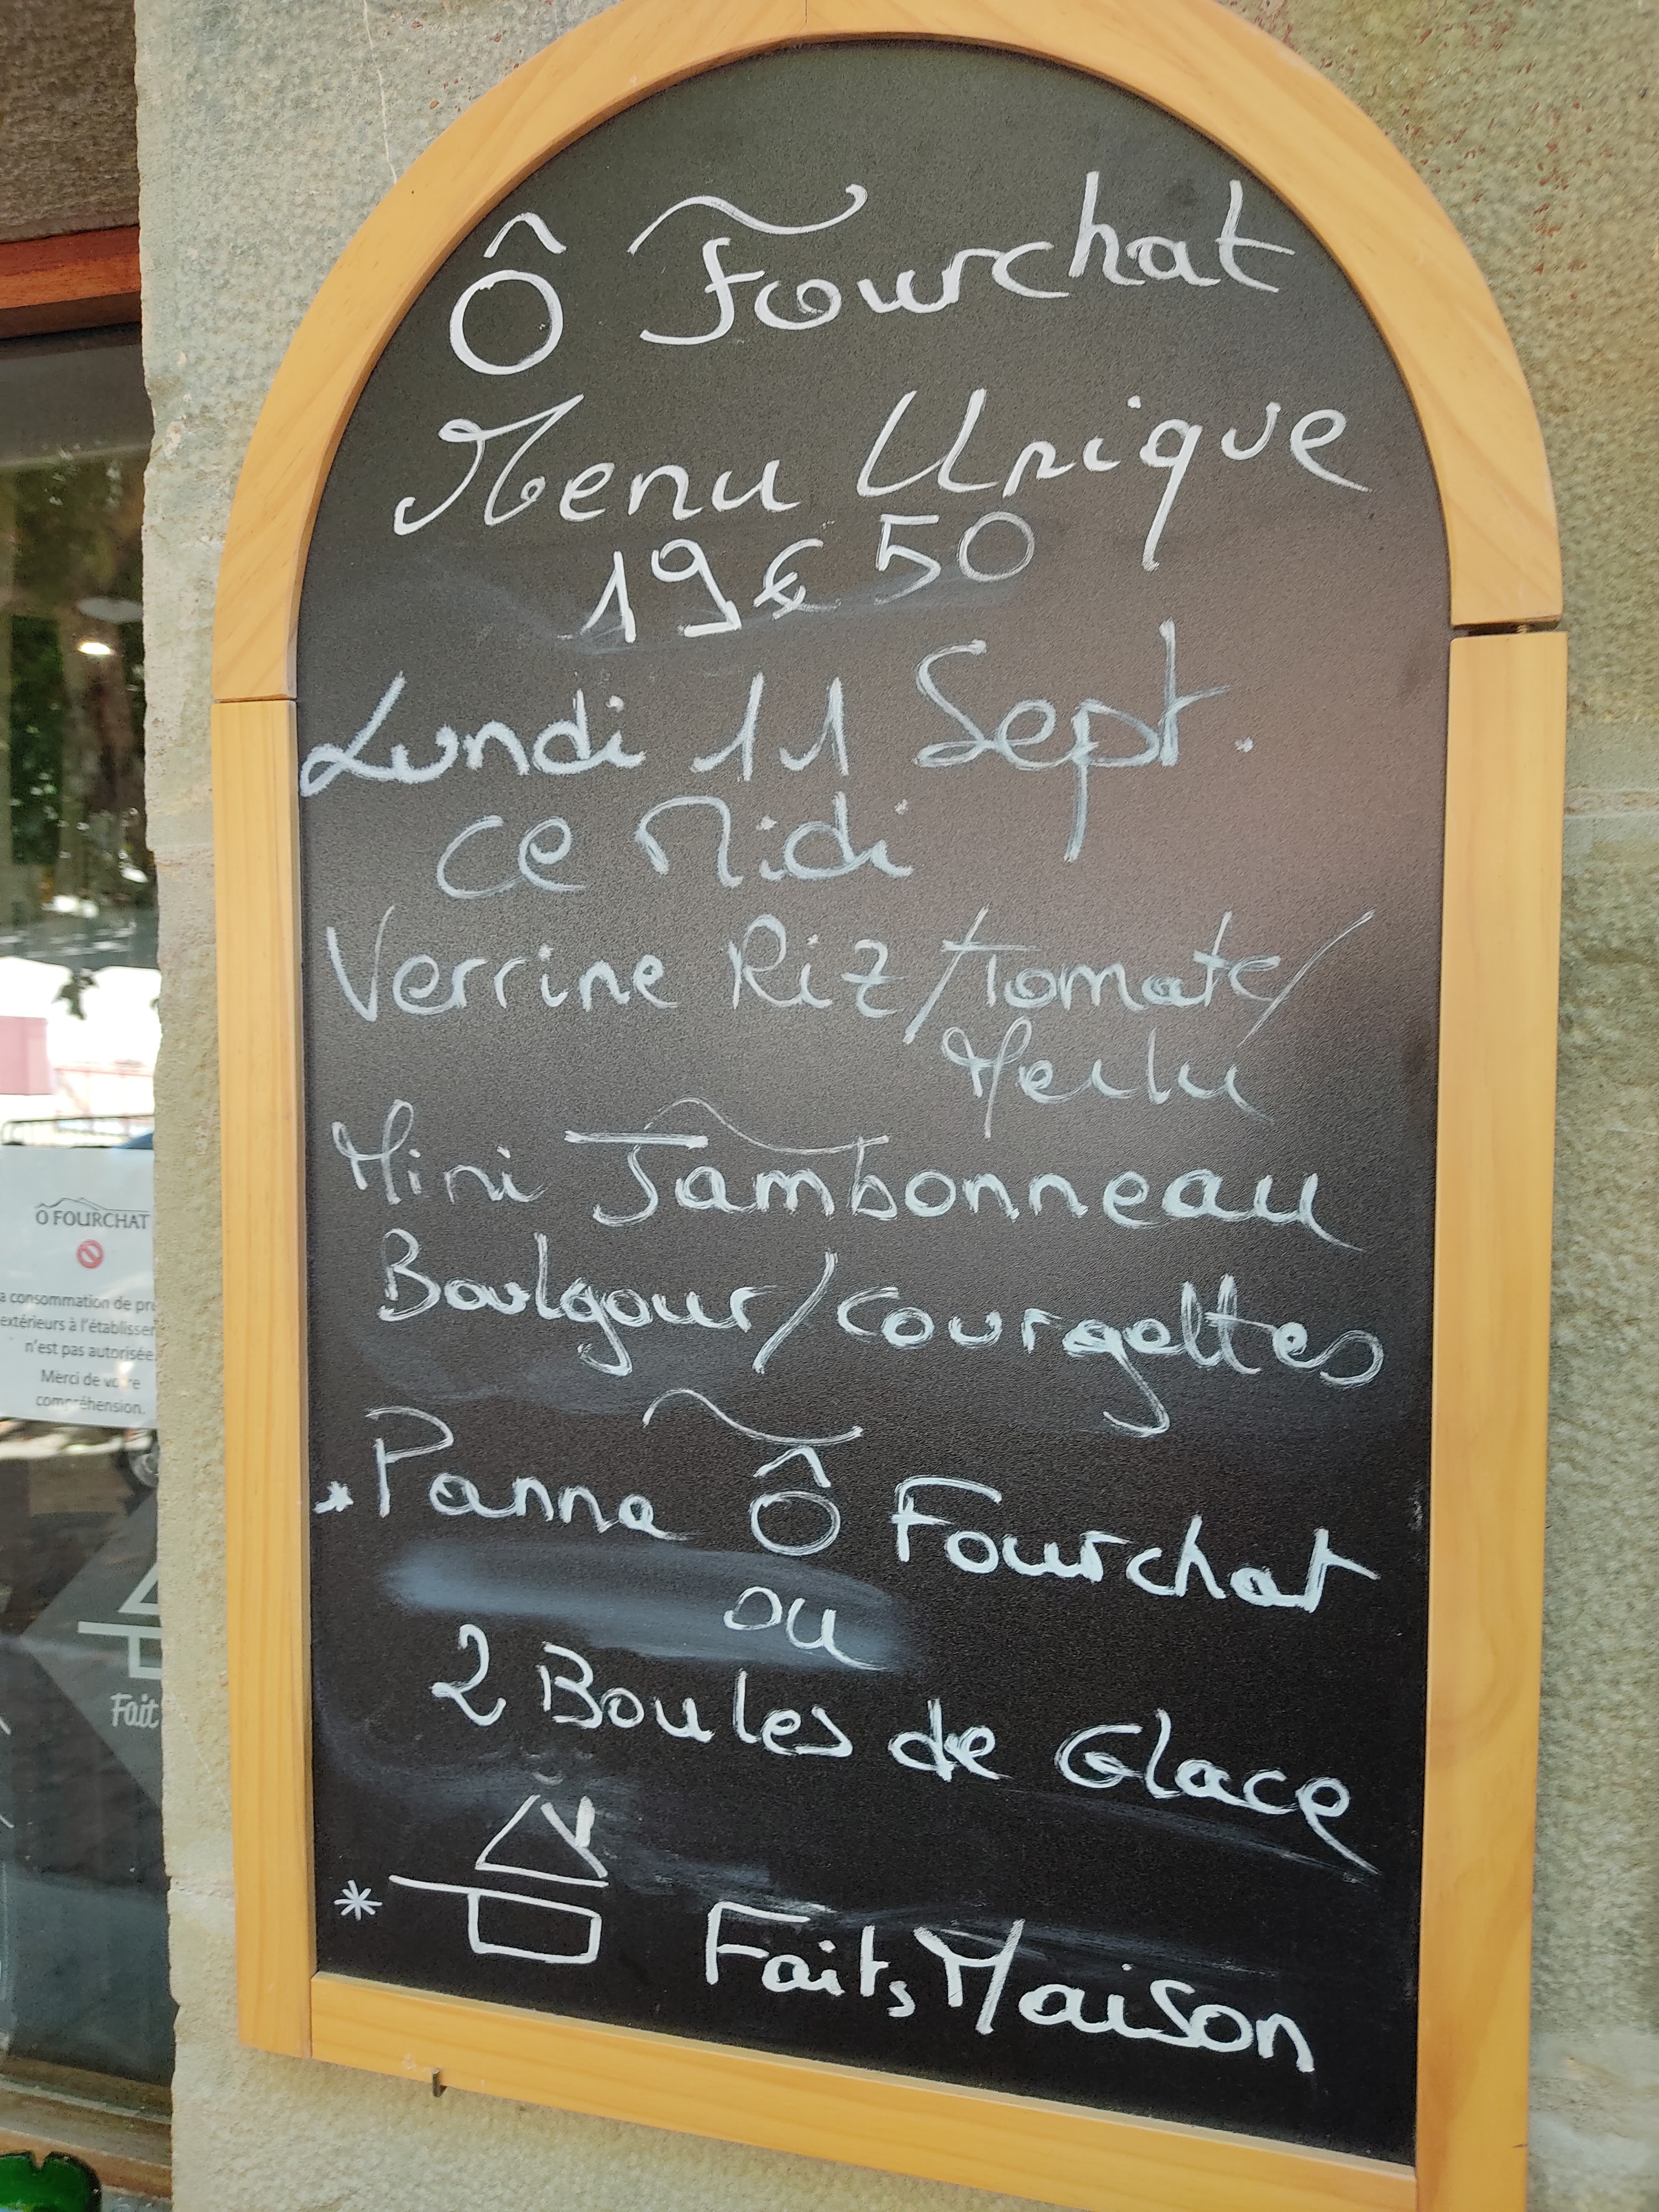 Ô Fourchat
Menu Unique
19€50
Lundi 11 Sept.
ce Midi
Verrine Riz/Tomate/
Merlu
Mini Jambonneau
Boulgour/courgettes
*Panna Ô Fourchat
ou
2 Boules de Glace
* Faits Maison
Ô FOURCHAT
a consommation de pro
extérieurs à l'établisse
n'est pas autorisée.
Merci de votre
compréhension.
Fait